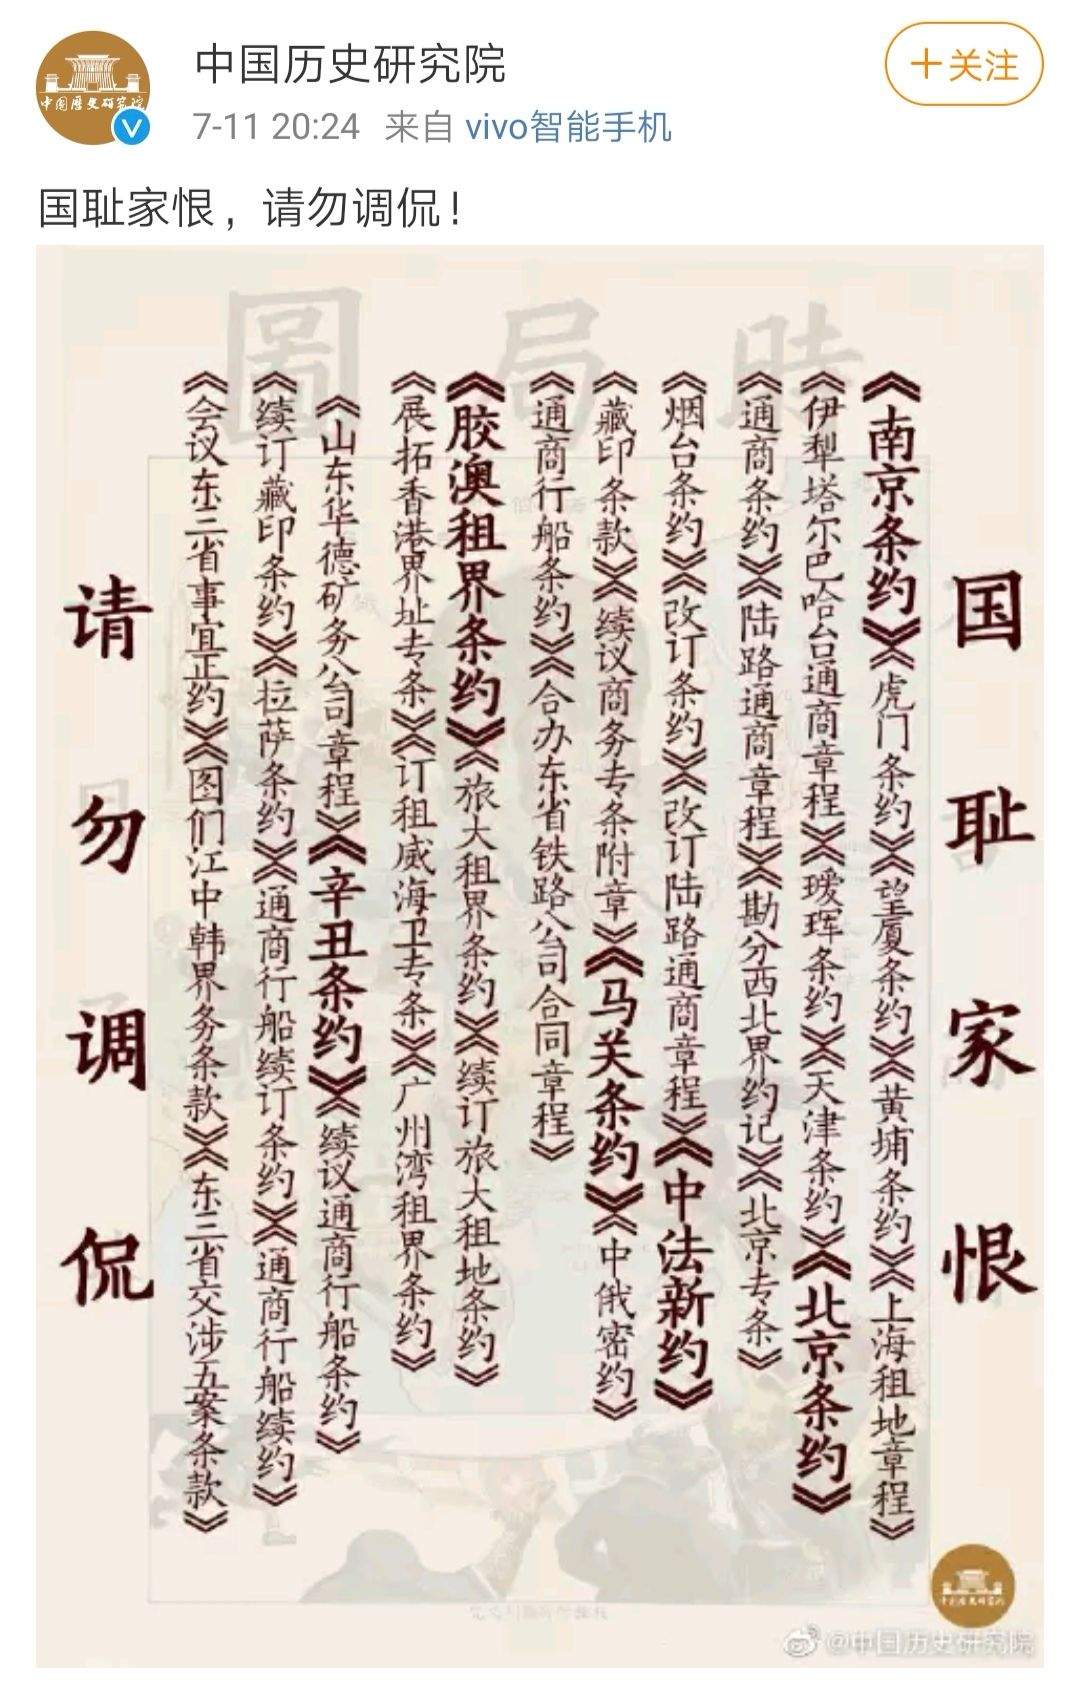 中国历史研究院
7-11 20:24 来自 vivo智能手机
+关注
国耻家恨，请勿调侃！
時局圖
国耻家恨
《南京条约》《虎门条约》《望厦条约》《黄埔条约》《上海租地章程》
《伊犁塔尔巴哈台通商章程》《瑷珲条约》《天津条约》《北京条约》
《通商条约》《陆路通商章程》《勘分西北界约记》《北京专条》
《烟台条约》《改订条约》《改订陆路通商章程》《中法新约》
《藏印条款》《续议商务专条附章》《马关条约》《中俄密约》
《通商行船条约》《合办东省铁路公司合同章程》
《胶澳租界条约》《旅大租界条约》《续订旅大租地条约》
《展拓香港界址专条》《订租威海卫专条》《广州湾租界条约》
《山东华德矿务公司章程》《辛丑条约》《续议通商行船条约》
《续订藏印条约》《拉萨条约》《通商行船续订条约》《通商行船续约》
《会议东三省事宜正约》《图们江中韩界务条款》《东三省交涉五案条款》
请勿调侃
中国历史研究院
@中国历史研究院